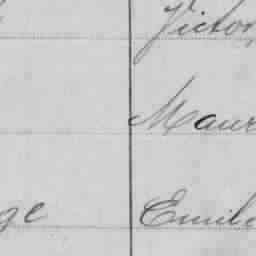 Victor
Maur
ge Emile